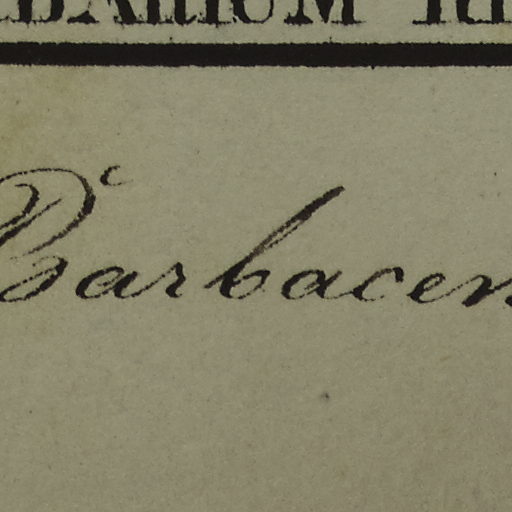 BARIUM RI
Barbacen